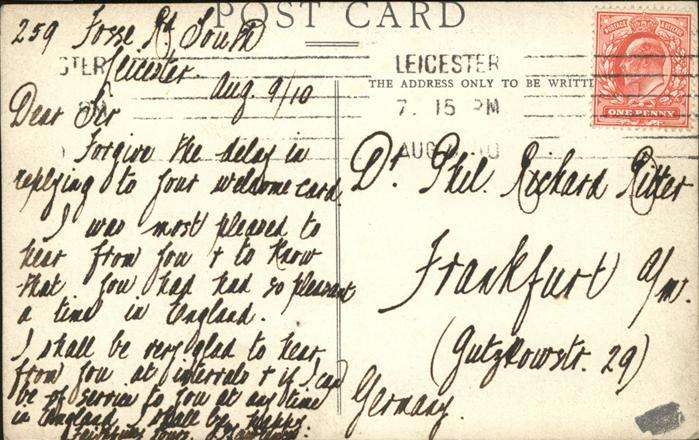 POST CARD
259 Fosse Rd South
Leicester.
Aug. 9/10
Dear Sir
Forgive the delay in
replying to your welcome card.
I was most pleased to
hear from you & to know
that you had had so pleasant
a time in England.
I shall be very glad to hear
from you at intervals & if I can
be of service to you at any time
in England I shall be happy
Faithfully yours,
LEICESTER
7. 15 PM
AUG
THE ADDRESS ONLY TO BE WRITT
ONE PENNY
Dr. Phil. Richard Ritter
Frankfurt a/m.
(Gutzkowstr. 29)
Germany.